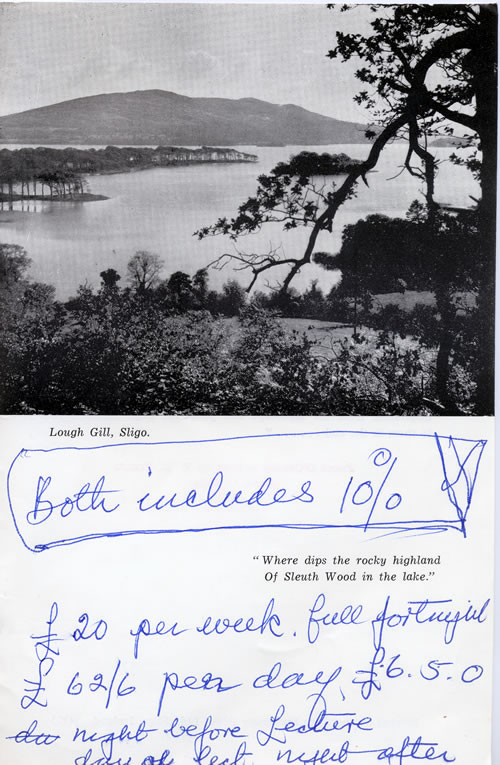 Lough Gill, Sligo.
Both includes 10%
"Where dips the rocky highland
Of Sleuth Wood in the lake."
£20 per week. full fortnight
£ 62/6 per day, £6.5.0
night before Lecture
day of last night after